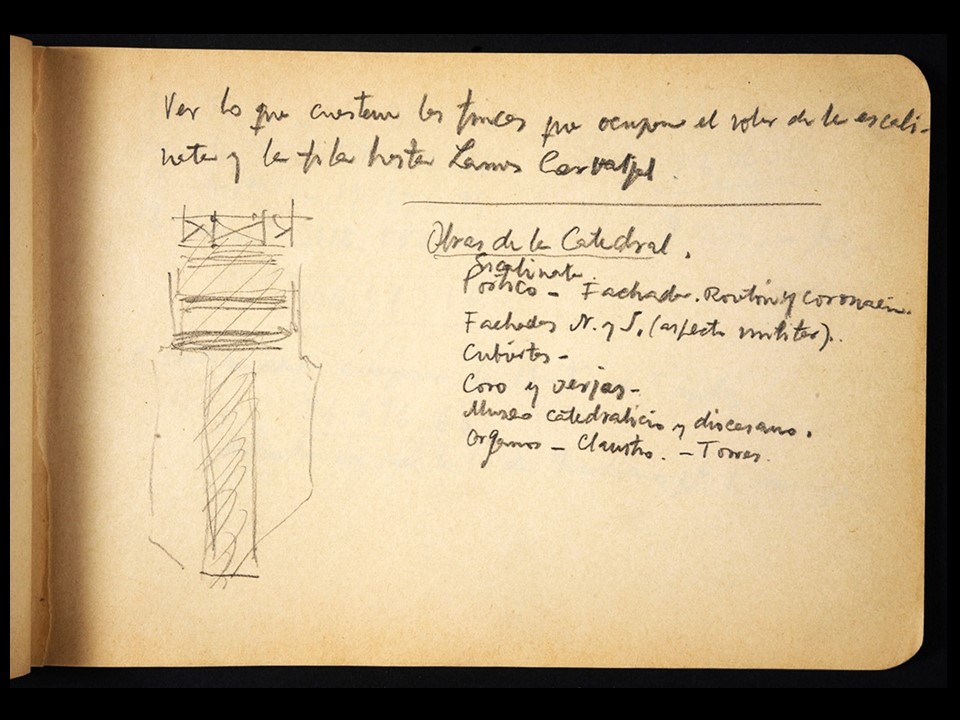 Ver lo que cuestan las fincas que ocupan el solar de la escali-
nata y la fila hasta Lamas Carvajal.
Obras de la Catedral.
Escalinata.
Pórtico - Fachada. Rosetón y coronación.
Fachadas N. y S. (aspecto militar).
Cubiertas -
Coro y verjas -
Museo catedralicio y diocesano.
Organos - Claustro. - Torres.